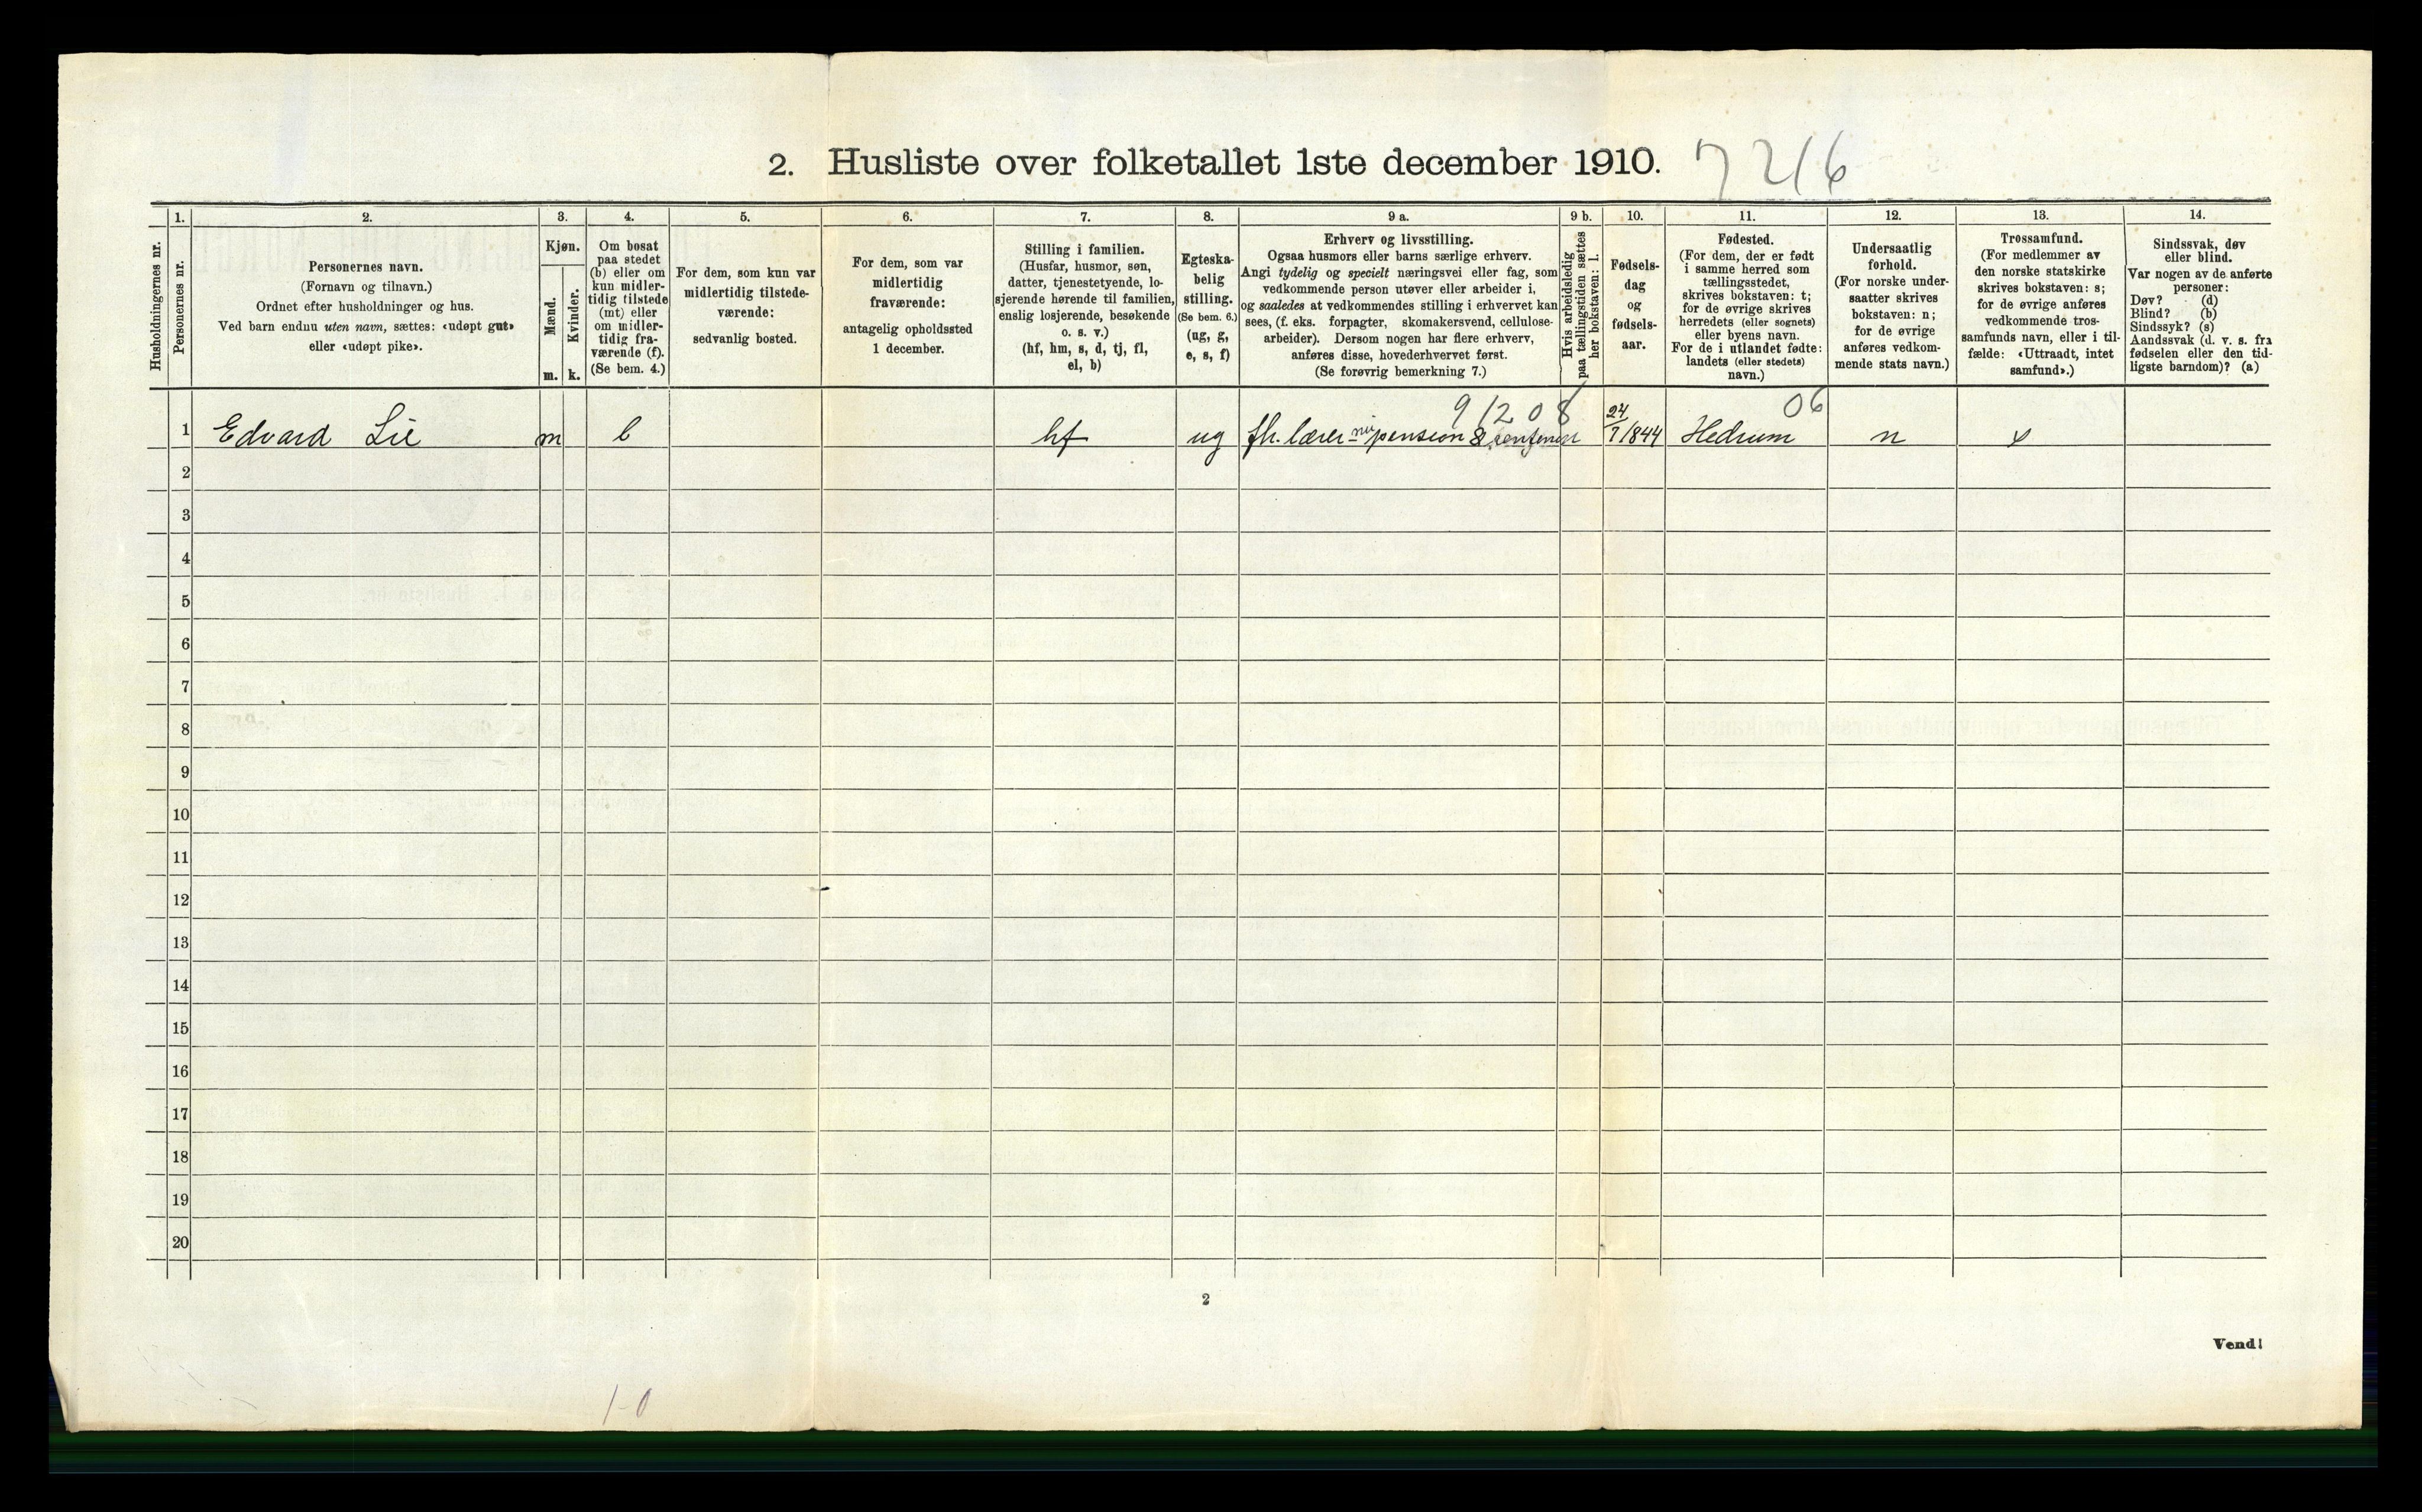 2. Husliste over folketallet 1ste december 1910. 7216
Husholdningernes nr.
1.
Personernes nr.
2.
Personernes navn.
(Fornavn og tilnavn.)
Ordnet efter husholdninger og hus.
Ved barn endnu uten navn, sættes: «udøpt gut»
eller «udøpt pike».
3.
Kjøn.
Mænd.
Kvinder.
m. k.
4.
Om bosat
paa stedet
(b) eller om
kun midler-
tidig tilstede
(mt) eller
om midler-
tidig fra-
værende (f).
(Se bem. 4.)
5.
For dem, som kun var
midlertidig tilstede-
værende:
sedvanlig bosted.
6.
For dem, som var
midlertidig
fraværende:
antagelig opholdssted
1 december.
7.
Stilling i familien.
(Husfar, husmor, søn,
datter, tjenestetyende, lo-
sjerende hørende til familien,
enslig losjerende, besøkende
o. s. v.)
(hf, hm, s, d, tj, fl,
el, b)
8.
Egteska-
belig
stilling.
(Se bem. 6.)
(ug, g,
e, s, f)
9 a.
Erhverv og livsstilling.
Ogsaa husmors eller barns særlige erhverv.
Angi tydelig og specielt næringsvei eller fag, som
vedkommende person utøver eller arbeider i,
og saaledes at vedkommendes stilling i erhvervet kan
sees, (f. eks. forpagter, skomakersvend, cellulose-
arbeider). Dersom nogen har flere erhverv,
anføres disse, hovederhvervet først.
(Se forøvrig bemerkning 7.)
9 b.
Hvis arbeidsledig
paa tællingstiden sættes
her bokstaven: l.
10.
Fødsels-
dag
og
fødsels-
aar.
11.
Fødested.
(For dem, der er født
i samme herred som
tællingsstedet,
skrives bokstaven: t;
for de øvrige skrives
herredets (eller sognets)
eller byens navn.
For de i utlandet fødte:
landets (eller stedets)
navn.)
12.
Undersaatlig
forhold.
(For norske under-
saatter skrives
bokstaven: n;
for de øvrige
anføres vedkom-
mende stats navn.)
13.
Trossamfund.
(For medlemmer av
den norske statskirke
skrives bokstaven: s;
for de øvrige anføres
vedkommende tros-
samfunds navn, eller i til-
fælde: «Uttraadt, intet
samfund».)
14.
Sindssvak, døv
eller blind.
Var nogen av de anførte
personer:
Døv? (d)
Blind? (b)
Sindssyk? (s)
Aandssvak (d. v. s. fra
fødselen eller den tid-
ligste barndom)? (a)
91208 06
1 Edvard Lie m b hf ug fh. lærer nu pension & 24/7 1844 Hedrum n s
2
3
4
5
6
7
8
9
10
11
12
13
14
15
16
17
18
19
20
2
Vend!
1-0